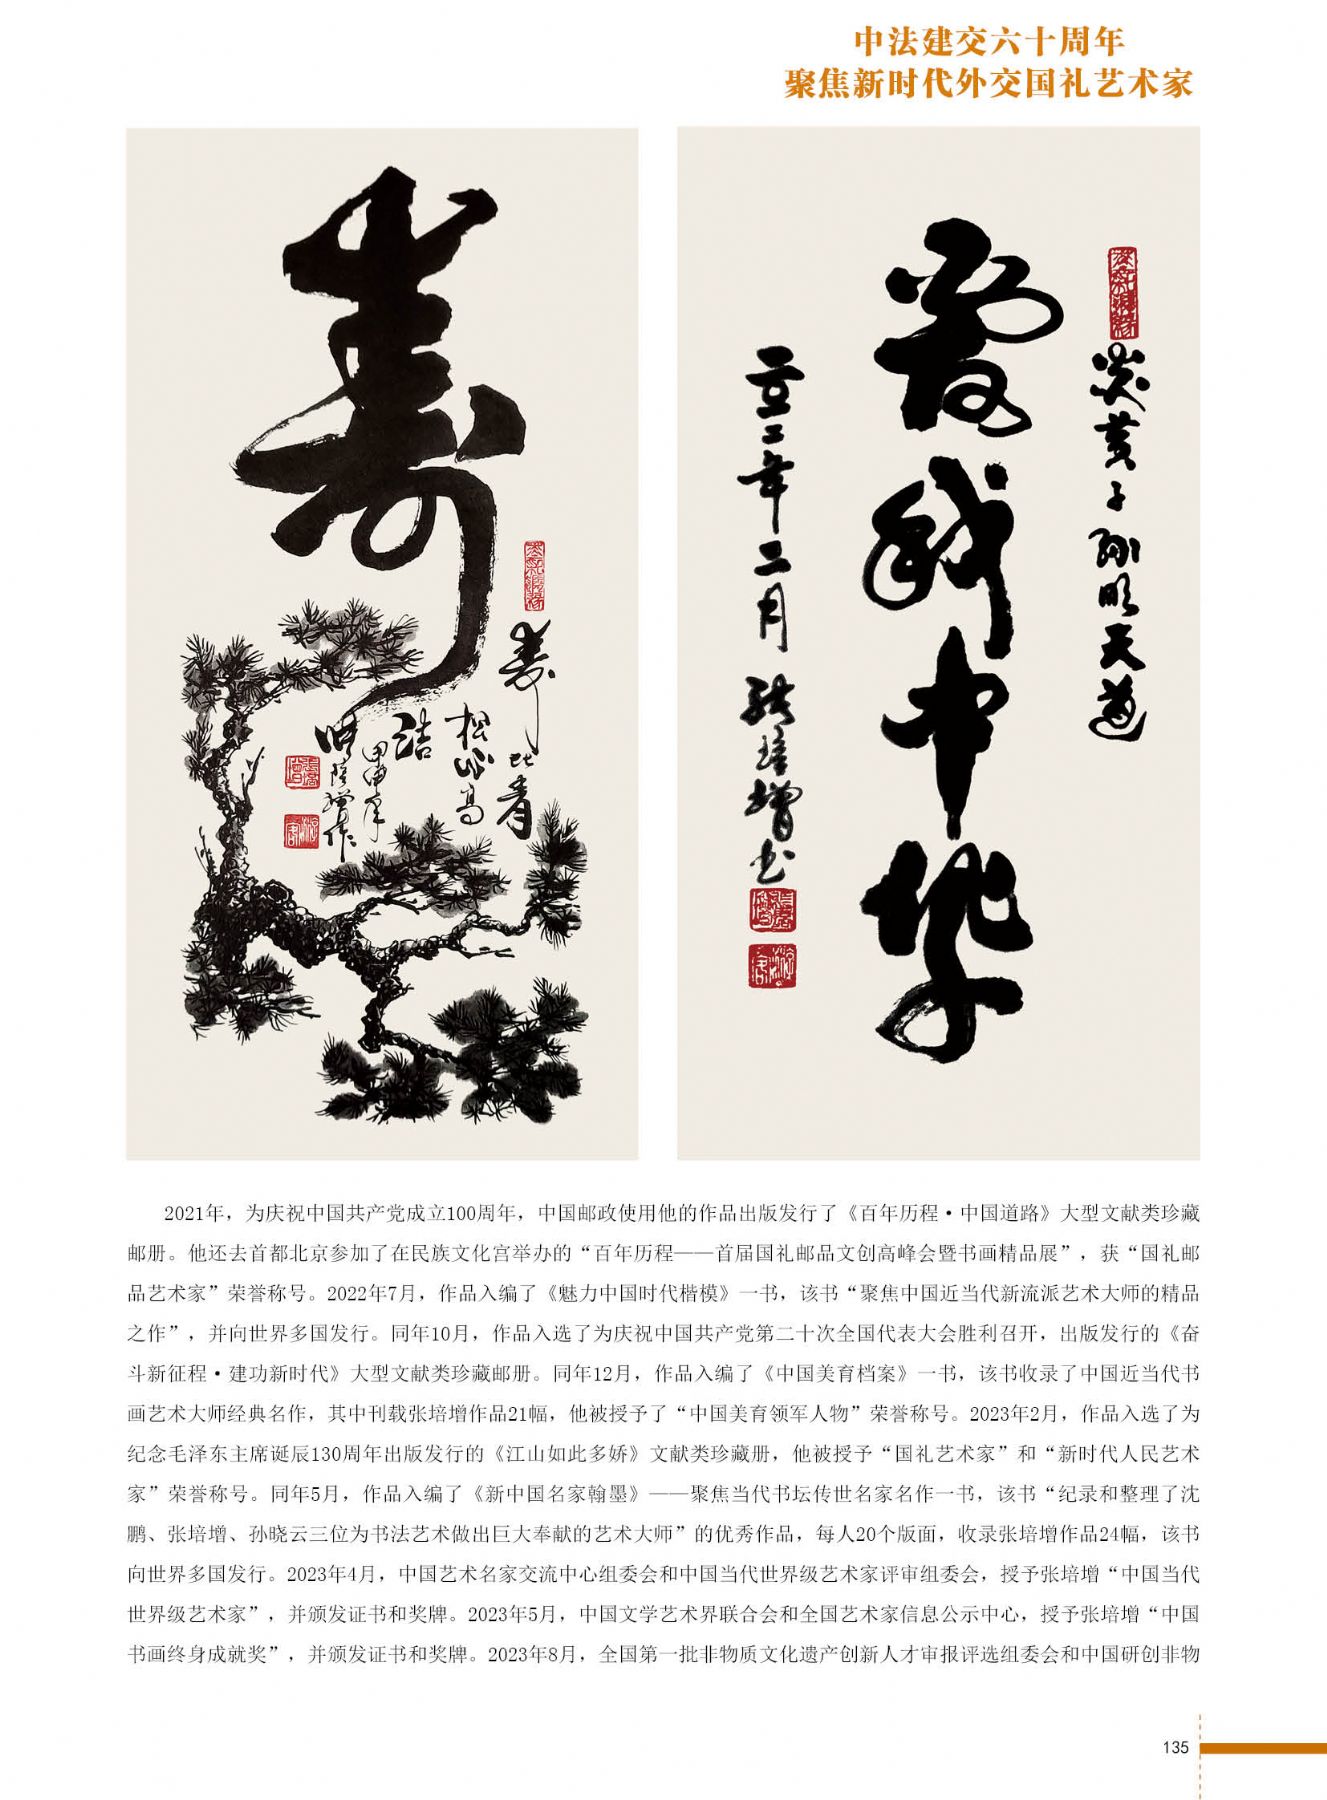 中法建交六十周年
聚焦新时代外交国礼艺术家
寿
寿比青
松山高
洁
甲申年
张培增作
炎黄子孙明天道
爱我中华
二〇二二年二月 张培增书
2021年，为庆祝中国共产党成立100周年，中国邮政使用他的作品出版发行了《百年历程·中国道路》大型文献类珍藏
邮册。他还去首都北京参加了在民族文化宫举办的“百年历程——首届国礼邮品文创高峰会暨书画精品展”，获“国礼邮
品艺术家”荣誉称号。2022年7月，作品入编了《魅力中国时代楷模》一书，该书“聚焦中国近当代新流派艺术大师的精品
之作”，并向世界多国发行。同年10月，作品入选了为庆祝中国共产党第二十次全国代表大会胜利召开，出版发行的《奋
斗新征程·建功新时代》大型文献类珍藏邮册。同年12月，作品入编了《中国美育档案》一书，该书收录了中国近当代书
画艺术大师经典名作，其中刊载张培增作品21幅，他被授予了“中国美育领军人物”荣誉称号。2023年2月，作品入选了为
纪念毛泽东主席诞辰130周年出版发行的《江山如此多娇》文献类珍藏册，他被授予“国礼艺术家”和“新时代人民艺术
家”荣誉称号。同年5月，作品入编了《新中国名家翰墨》——聚焦当代书坛传世名家名作一书，该书“纪录和整理了沈
鹏、张培增、孙晓云三位为书法艺术做出巨大奉献的艺术大师”的优秀作品，每人20个版面，收录张培增作品24幅，该书
向世界多国发行。2023年4月，中国艺术名家交流中心组委会和中国当代世界级艺术家评审组委会，授予张培增“中国当代
世界级艺术家”，并颁发证书和奖牌。2023年5月，中国文学艺术界联合会和全国艺术家信息公示中心，授予张培增“中国
书画终身成就奖”，并颁发证书和奖牌。2023年8月，全国第一批非物质文化遗产创新人才审报评选组委会和中国研创非物
135